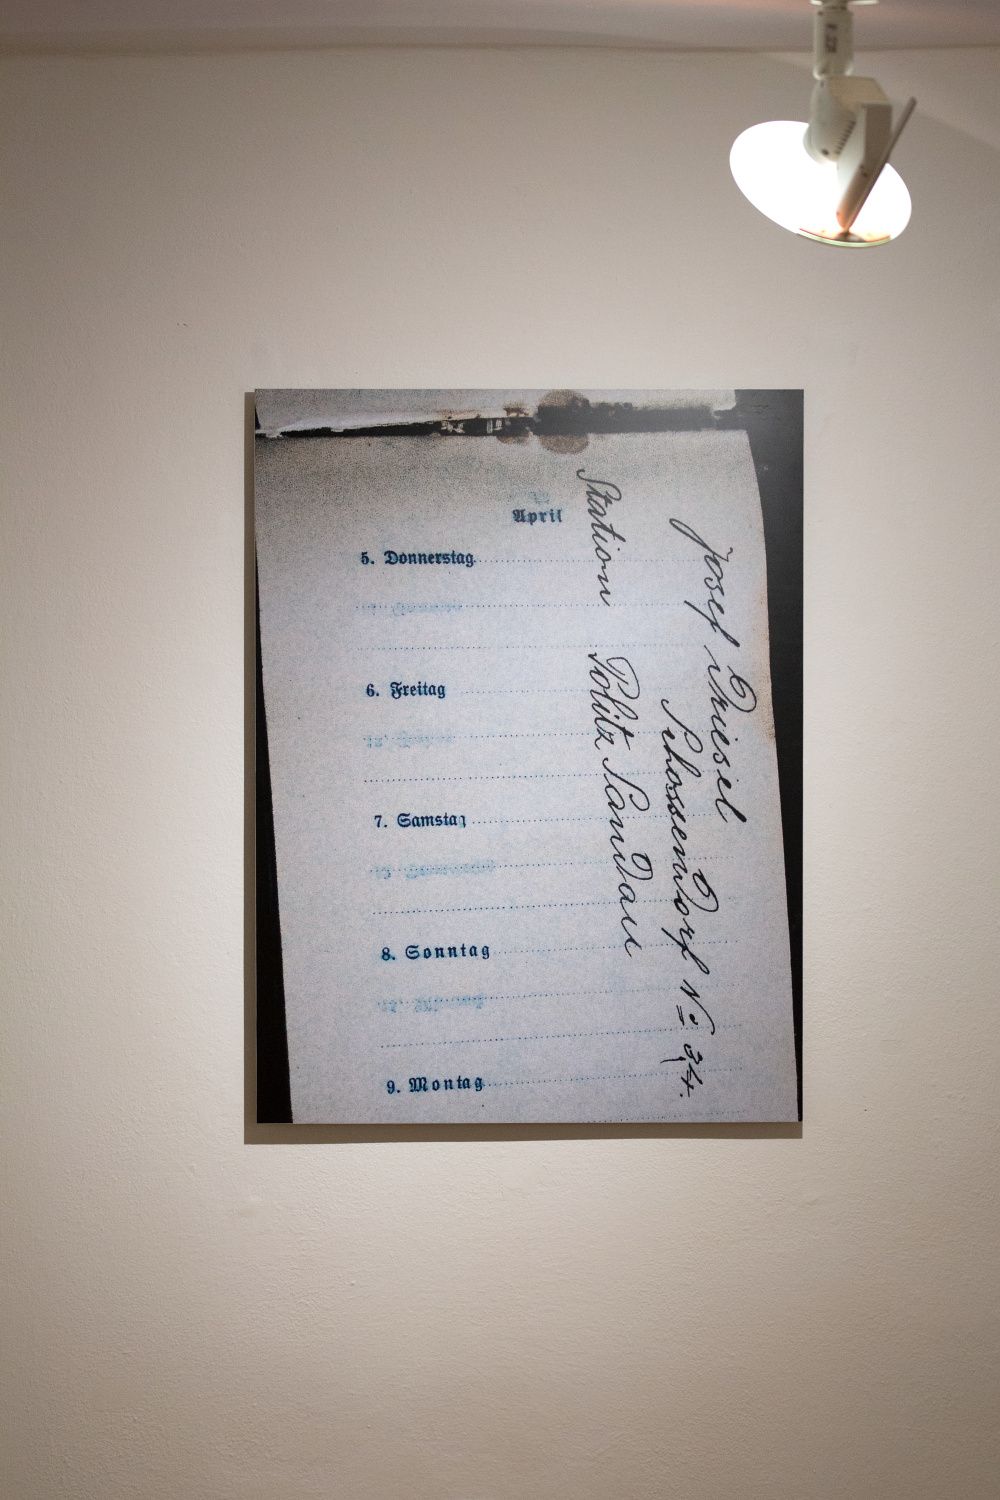 April
5. Donnerstag
6. Freitag
7. Samstag
8. Sonntag
9. Montag
Josef
Schossendorf No 34.
Station Politz Sandau